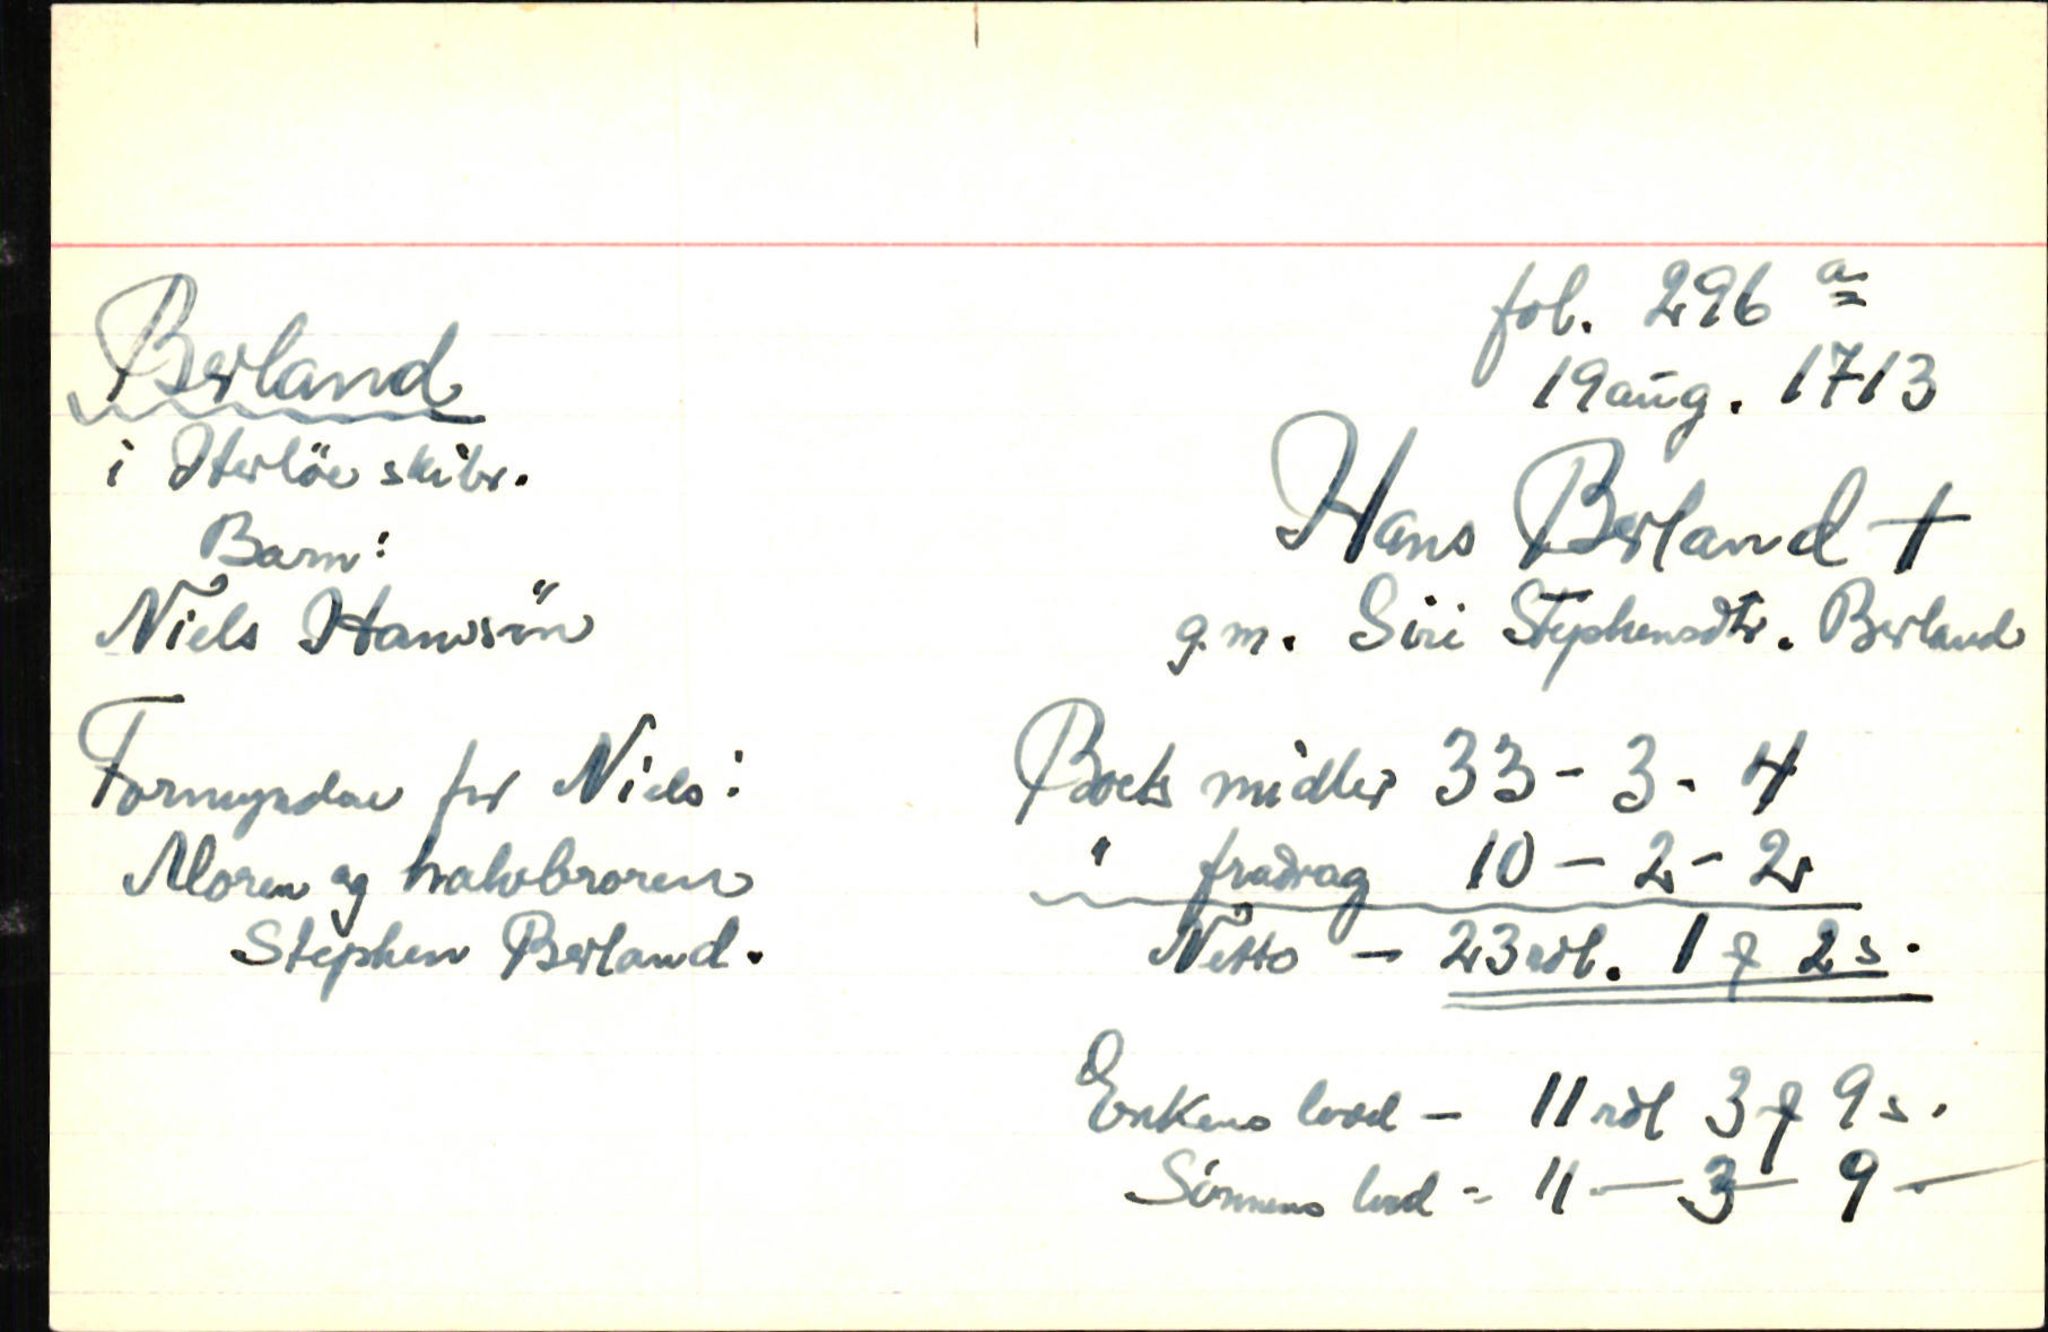 fol. 296 a
19 aug. 1713
Berland
i Herlöe skibr.
Barn:
Niels Hansön
Formynder for Niels:
Moren og halvbroren
Stephen Berland.
Hans Berland †
g.m. Siri Stephensdtr. Berland
Boets midler 33 - 3 - 4
" fradrag 10 - 2 - 2
Netto - 23 rdl. 1 ƒ 2 s.
Enkens lod - 11 rdl 3 ƒ 9 s.
Sönnens lod - 11 — 3 — 9 —